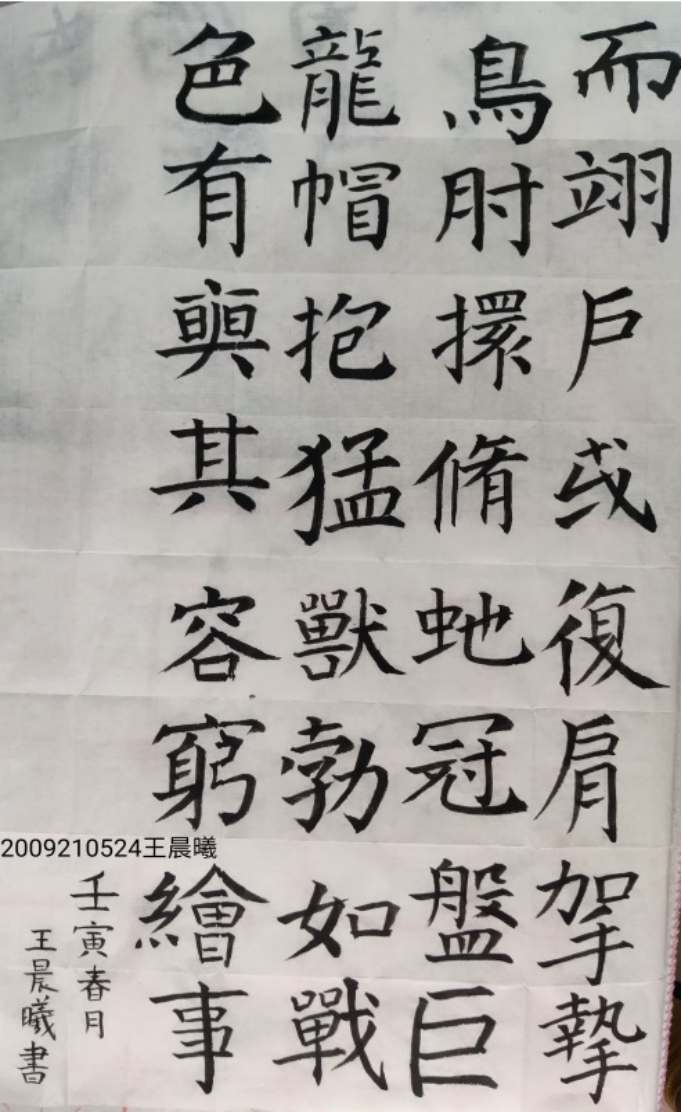 而翊户或復肩拏摯
鳥肘擐脩虵冠盤巨
龍帽抱猛獸勃如戰
色有奭其容窮繪事
壬寅春月
王晨曦書
2009210524王晨曦